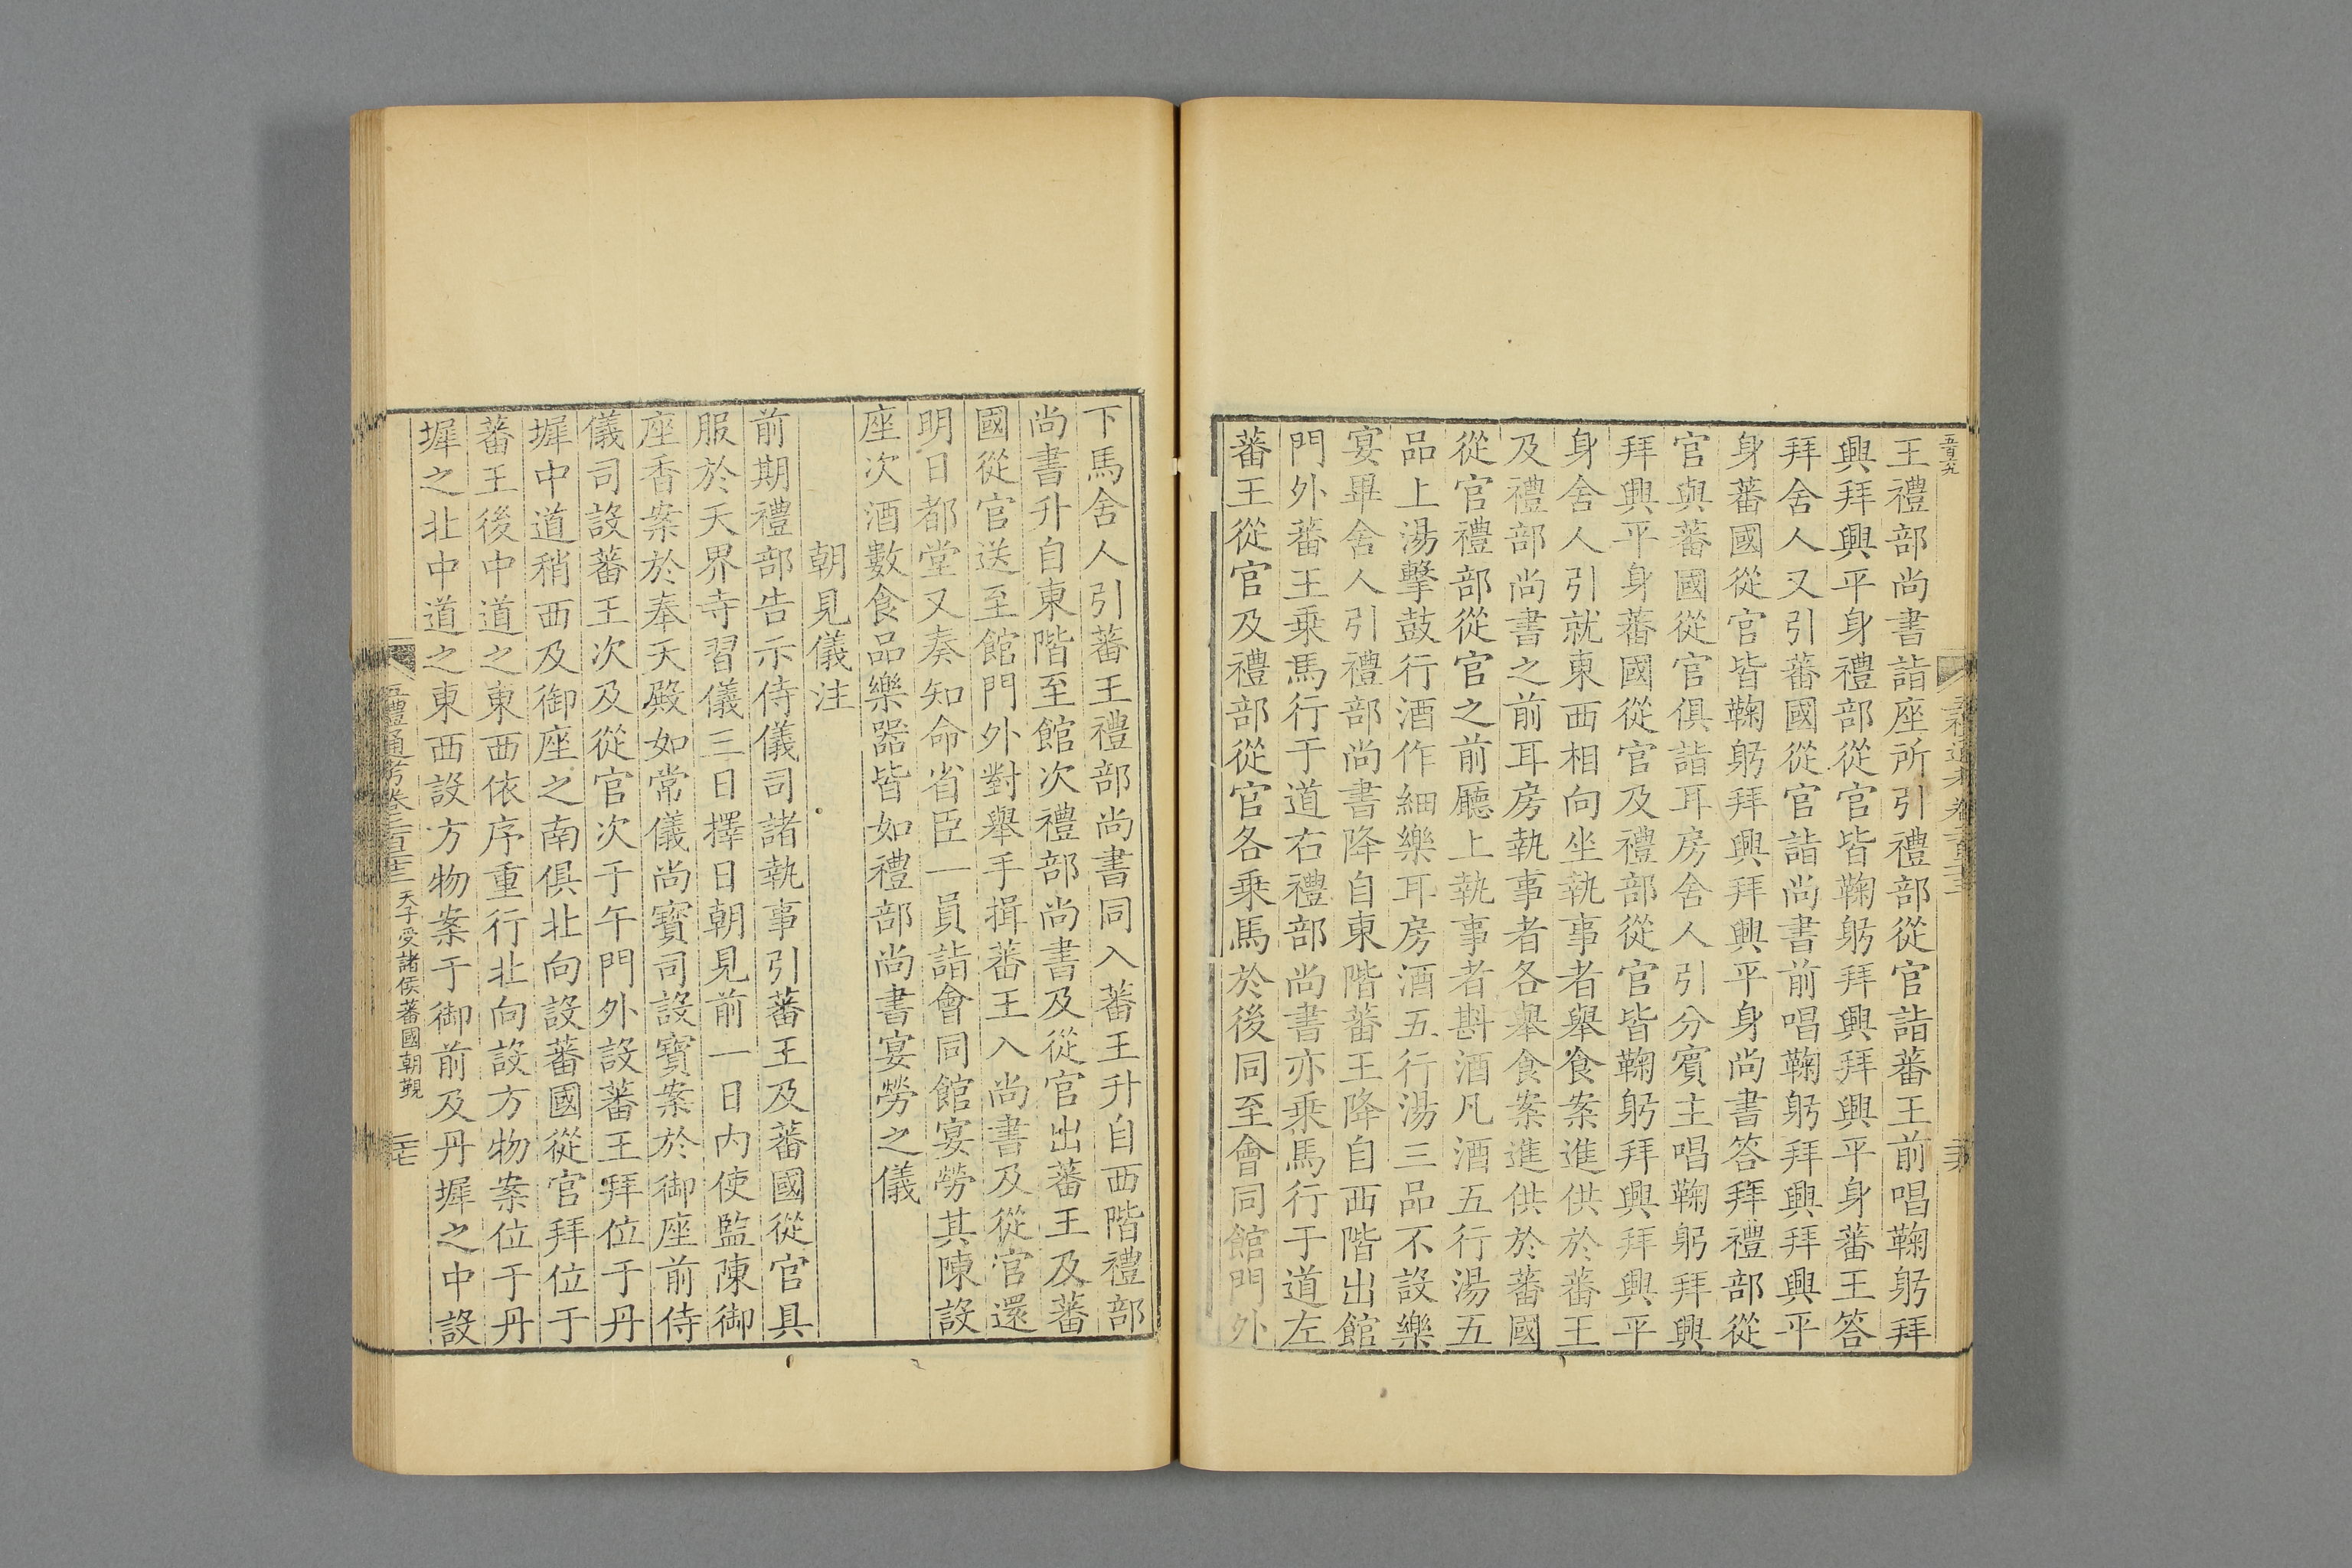 王禮部尚書詣座所引禮部從官詣蕃王前唱鞠躬拜
興拜興平身禮部從官皆鞠躬拜興拜興平身蕃王答
拜舍人又引蕃國從官詣尚書前唱鞠躬拜興拜興平
身蕃國從官皆鞠躬拜興拜興平身尚書答拜禮部從
官與蕃國從官俱詣耳房舍人引分賓主唱鞠躬拜興
拜興平身蕃國從官及禮部從官皆鞠躬拜興拜興平
身舍人引就東西相向坐執事者舉食案進供於蕃王
及禮部尚書之前耳房執事者各舉食案進供於蕃國
從官禮部從官之前廳上執事者斟酒凡酒五行湯五
品上湯擊鼓行酒作細樂耳房酒五行湯三品不設樂
宴畢舍人引禮部尚書降自東階蕃王降自西階出館
門外蕃王乘馬行于道右禮部尚書亦乘馬行于道左
蕃王從官及禮部從官各乘馬於後同至會同館門外
下馬舍人引蕃王禮部尚書同入蕃王升自西階禮部
尚書升自東階至館次禮部尚書及從官出蕃王及蕃
國從官送至館門外對舉手揖蕃王入尚書及從官還
明日都堂又奏知命省臣一員詣會同館宴勞其陳設
座次酒數食品樂器皆如禮部尚書宴勞之儀
朝見儀注
前期禮部告示侍儀司諸執事引蕃王及蕃國從官具
服於天界寺習儀三日擇日朝見前一日內使監陳御
座香案於奉天殿如常儀尚寶司設寶案於御座前侍
儀司設蕃王次及從官次于午門外設蕃王拜位于丹
墀中道稍西及御座之南俱北向設蕃國從官拜位于
蕃王後中道之東西依序重行北向設方物案位于丹
墀之北中道之東西設方物案于御前及丹墀之中設
五禮通考卷二百二十二 天子受諸侯蕃國朝覲 二七